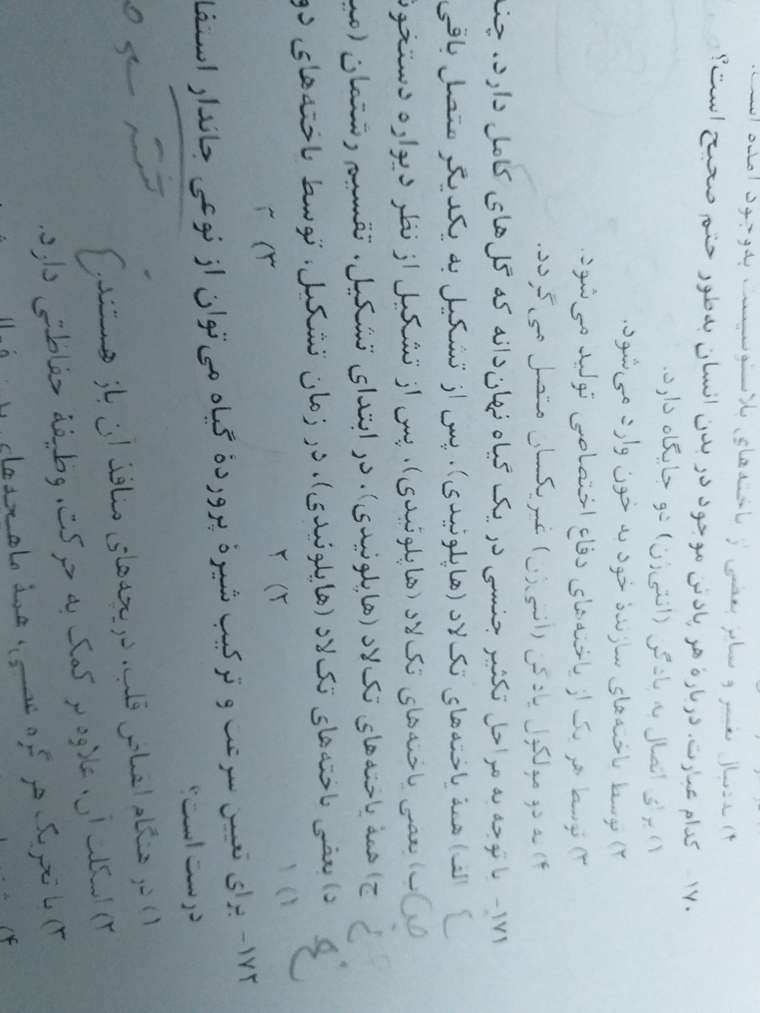 ۴) به دنبال تغییر و تمایز بعضی از یاخته‌های بلاستوسیست به‌وجود آمده است.
۱۷۰- کدام عبارت، دربارهٔ هر پادتن موجود در بدن انسان به‌طور حتم صحیح است؟
۱) برای اتصال به پادگن (آنتی‌ژن) دو جایگاه دارد.
۲) توسط یاخته‌های سازندهٔ خود به خون وارد می‌شود.
۳) توسط هر یک از یاخته‌های دفاع اختصاصی تولید می‌شود.
۴) به دو مولکول پادگن (آنتی‌ژن) غیریکسان متصل می‌گردد.
۱۷۱- با توجه به مراحل تکثیر جنسی در یک گیاه نهان‌دانه که گل‌های کامل دارد،
الف) همهٔ یاخته‌های تک‌لاد (هاپلوئیدی)، پس از تشکیل به یکدیگر متصل باقی
ب) بعضی یاخته‌های تک‌لاد (هاپلوئیدی)، پس از تشکیل از نظر دیواره
ج) همهٔ یاخته‌های تک‌لاد (هاپلوئیدی)، در ابتدای تشکیل، تقسیم رشتمان
د) بعضی یاخته‌های تک‌لاد (هاپلوئیدی)، در زمان تشکیل، توسط یاخته‌های
۱) ۱ ۲) ۲ ۳) ۳
۱۷۲- برای تعیین سرعت و ترکیب شیرهٔ پروردهٔ گیاه می‌توان از نوعی جاندار
درست است؟
۱) در هنگام انقباض قلب، دریچه‌های منافذ آن باز هستند.
۲) اسکلت آن، علاوه بر کمک به حرکت، وظیفهٔ حفاظتی دارد.
۳) با تحریک هر گره عصبی، همهٔ ماهیچه‌های بدن
۴)